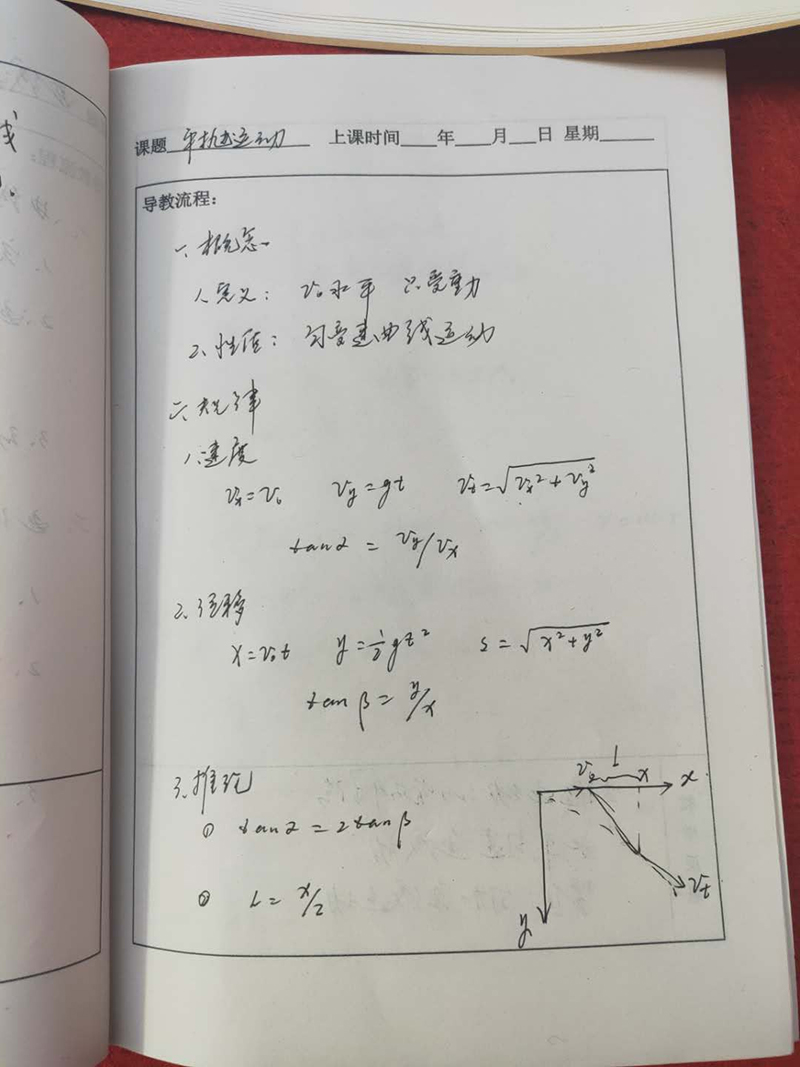 课题 平抛运动 上课时间____年____月___日 星期______
导教流程:
一、概念
1、定义: v₀水平 只受重力
2、性质: 匀变速曲线运动
二、规律
1、速度
vₓ=v₀ v_y=gt v_t=√(vₓ²+v_y²)
tanα = v_y/vₓ
2、位移
x=v₀t y=½gt² s=√(x²+y²)
tanβ=y/x
3、推论
① tanα=2tanβ
② L=x/2
v₀ L x x
v_t
y